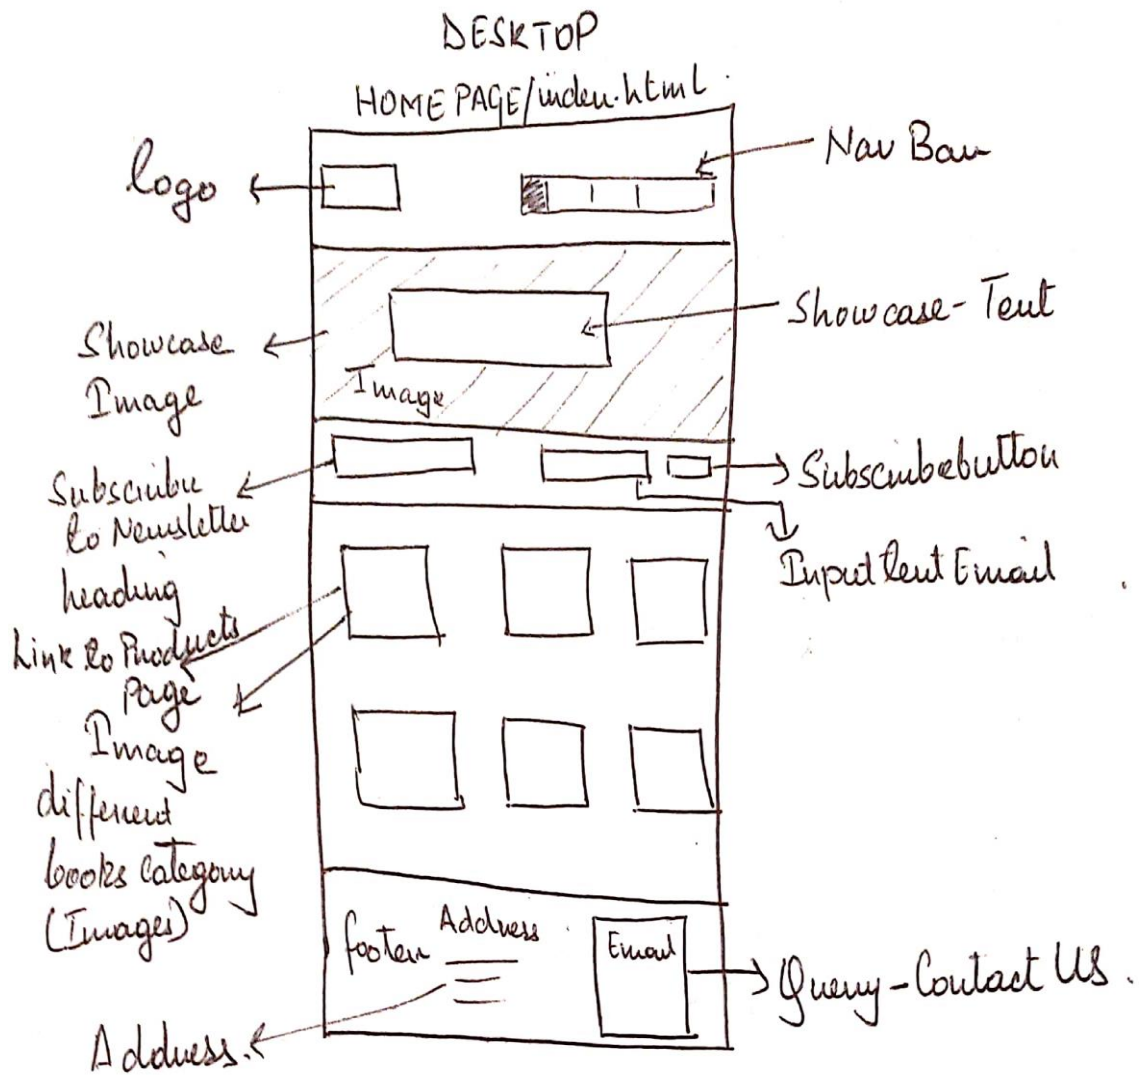 DESKTOP
HOME PAGE/index.html
Logo
Nav Bar
Showcase-Text
Showcase
Image
Image
Subscribe
to Newsletter
heading
Subscribebutton
Input text Email
Link to Products
Page
Image
different
books category
(Images)
footer
Address
Email
Query-Contact US.
Address.